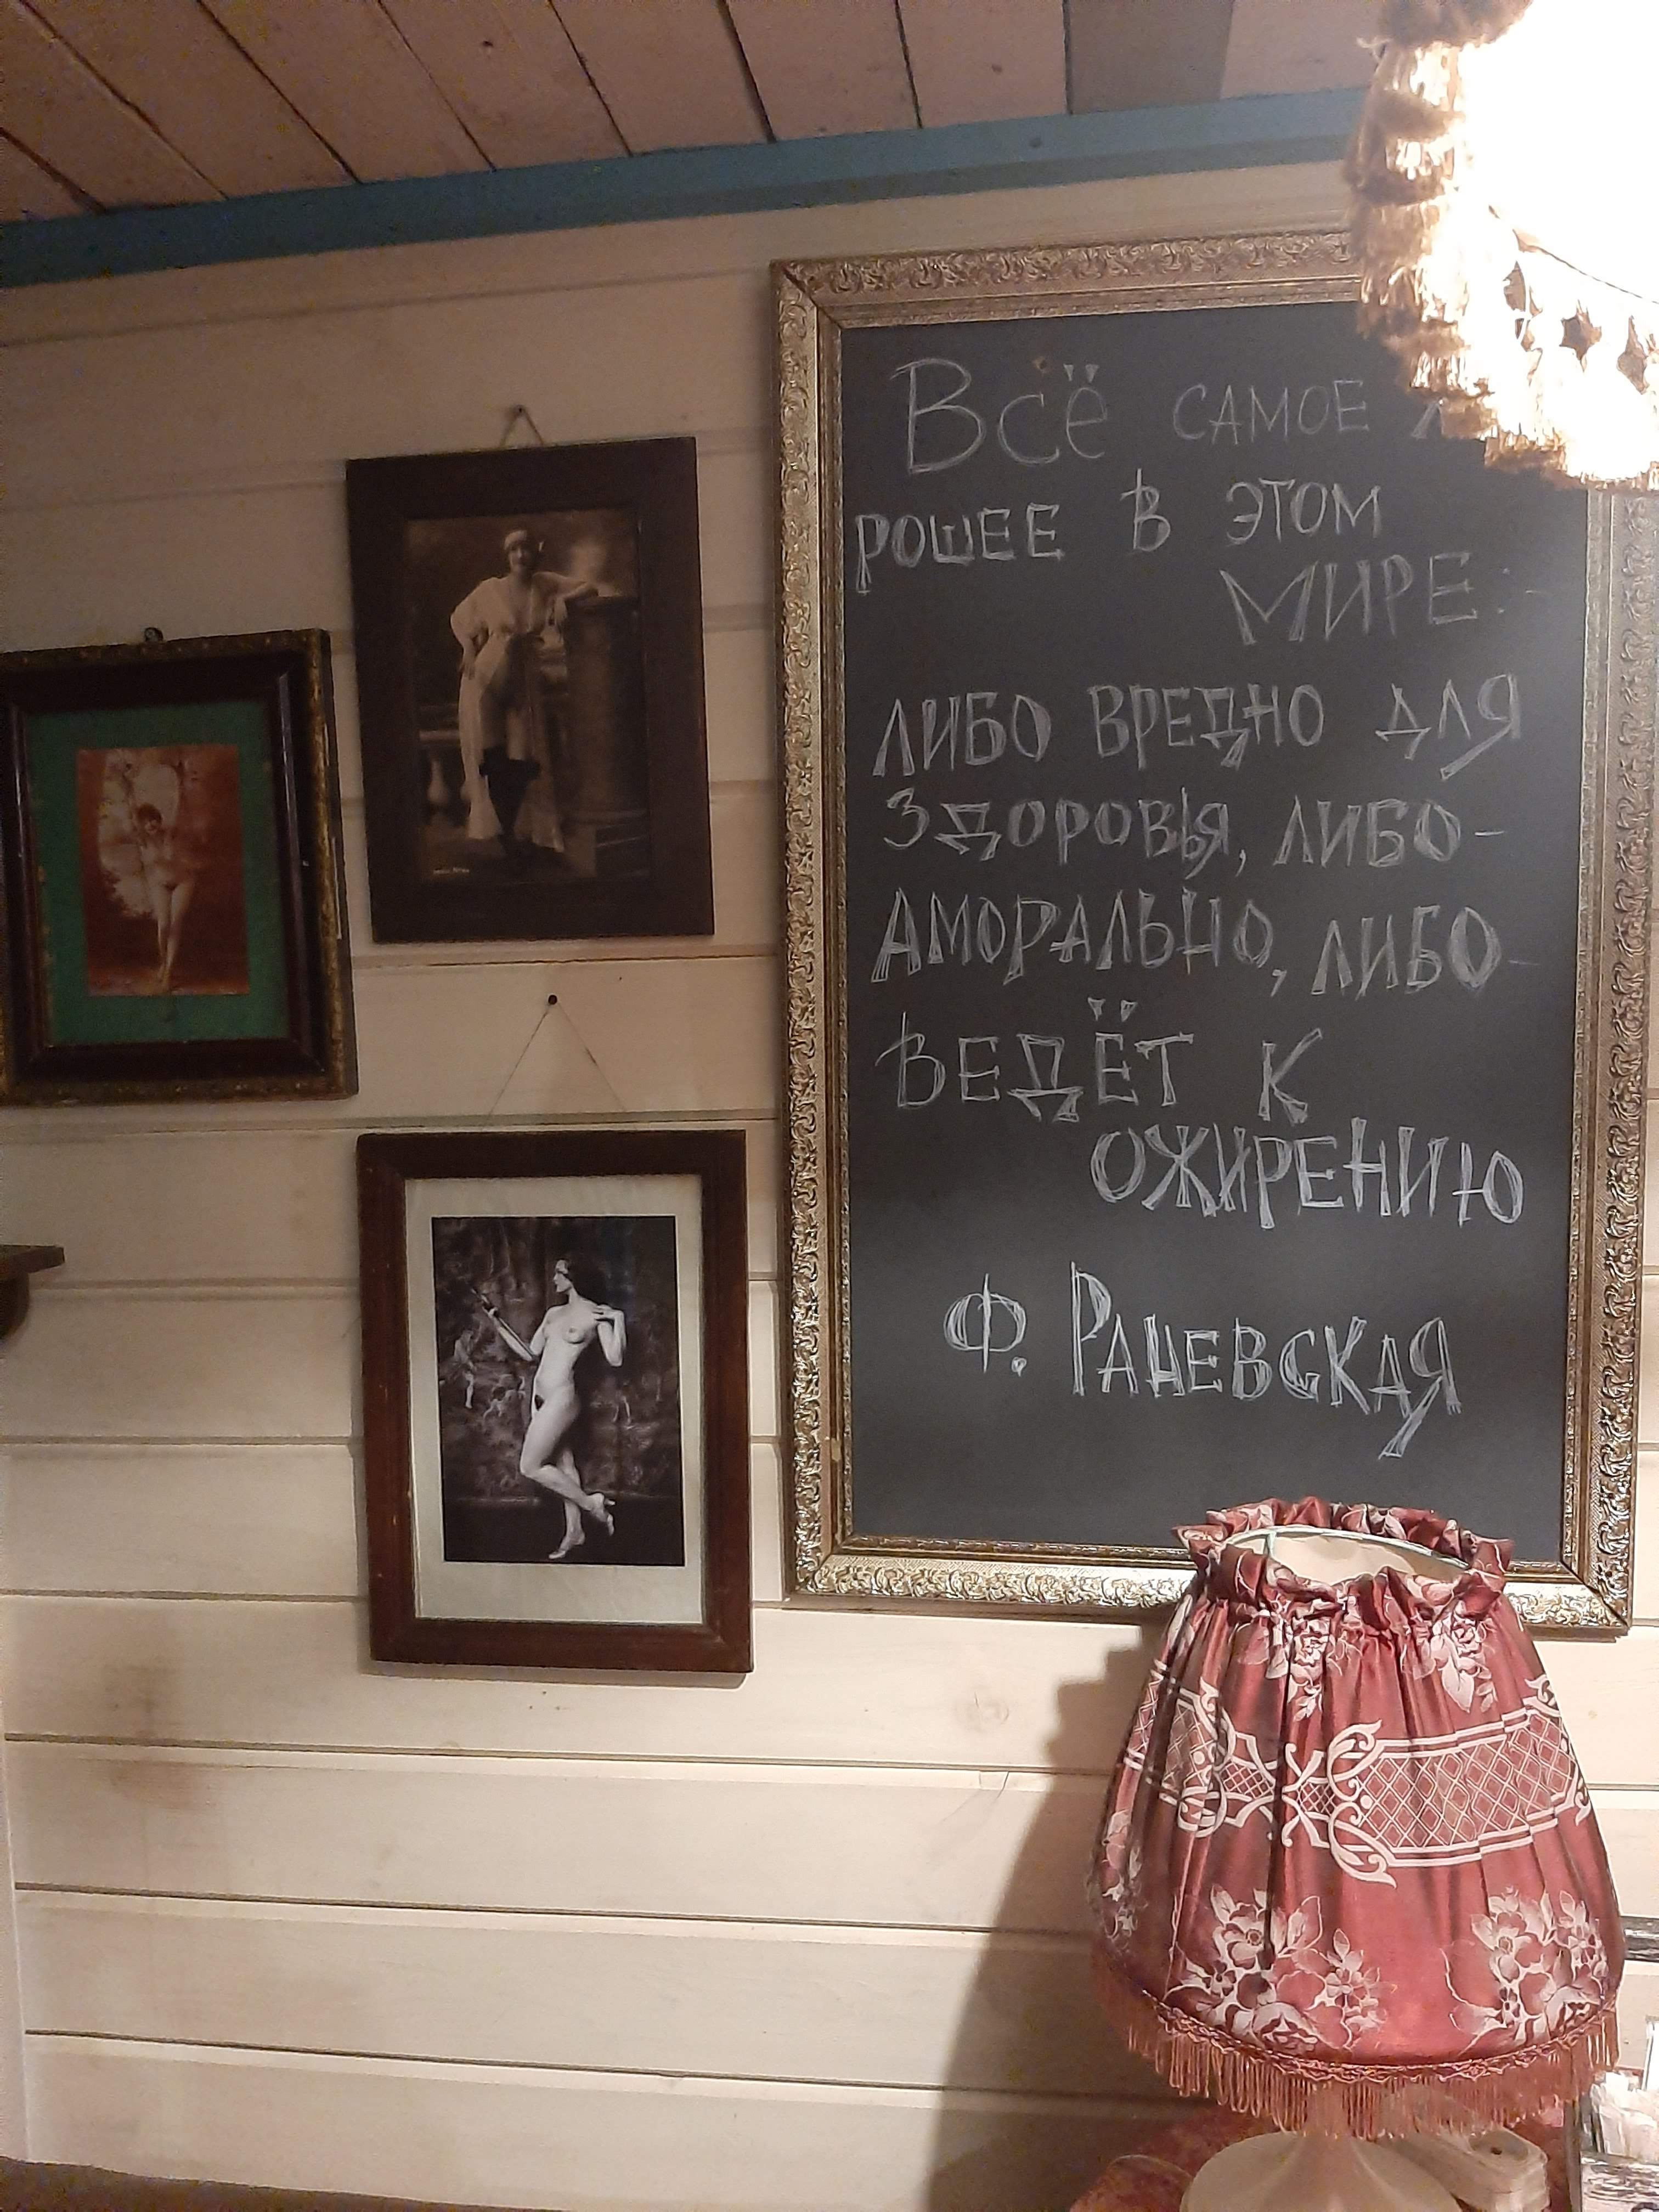 Всё САМОЕ
РОШЕЕ В ЭТОМ
МИРЕ:
ЛИБО ВРЕДНО ДЛЯ
ЗДОРОВЬЯ, ЛИБО-
АМОРАЛЬНО, ЛИБО-
ВЕДЁТ К
ОЖИРЕНИЮ
Ф. РАНЕВСКАЯ